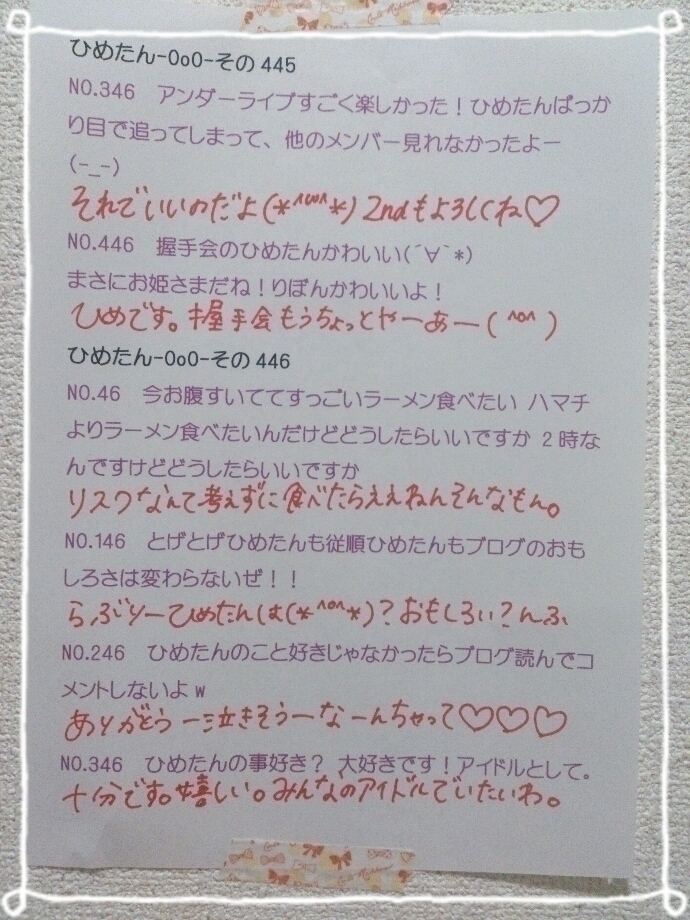 ひめたん-OoO-その445
NO.346　アンダーライブすごく楽しかった！ひめたんばっか
り目で追ってしまって、他のメンバー見れなかったよー
(-_-)
それでいいのだよ(*^ω^*)2ndもよろしくね♡
NO.446　握手会のひめたんかわいい(´∀｀*)
まさにお姫さまだね！りぼんかわいいよ！
ひめです。握手会もうちょっとやーあー(^o^)
ひめたん-OoO-その446
NO.46　今お腹すいててすっごいラーメン食べたい ハマチ
よりラーメン食べたいんだけどどうしたらいいですか 2時な
んですけどどうしたらいいですか
リスクなんて考えずに食べたらええねんそんなもん。
NO.146　とげとげひめたんも従順ひめたんもブログのおも
しろさは変わらないぜ！！
らぶりーひめたんは(*^o^*)？おもしろい？んふ
NO.246　ひめたんのこと好きじゃなかったらブログ読んでコ
メントしないよw
ありがとう一泣きそうーなーんちゃって♡♡♡
NO.346　ひめたんの事好き？ 大好きです！アイドルとして。
十分です。嬉しい。みんなのアイドルでいたいわ。